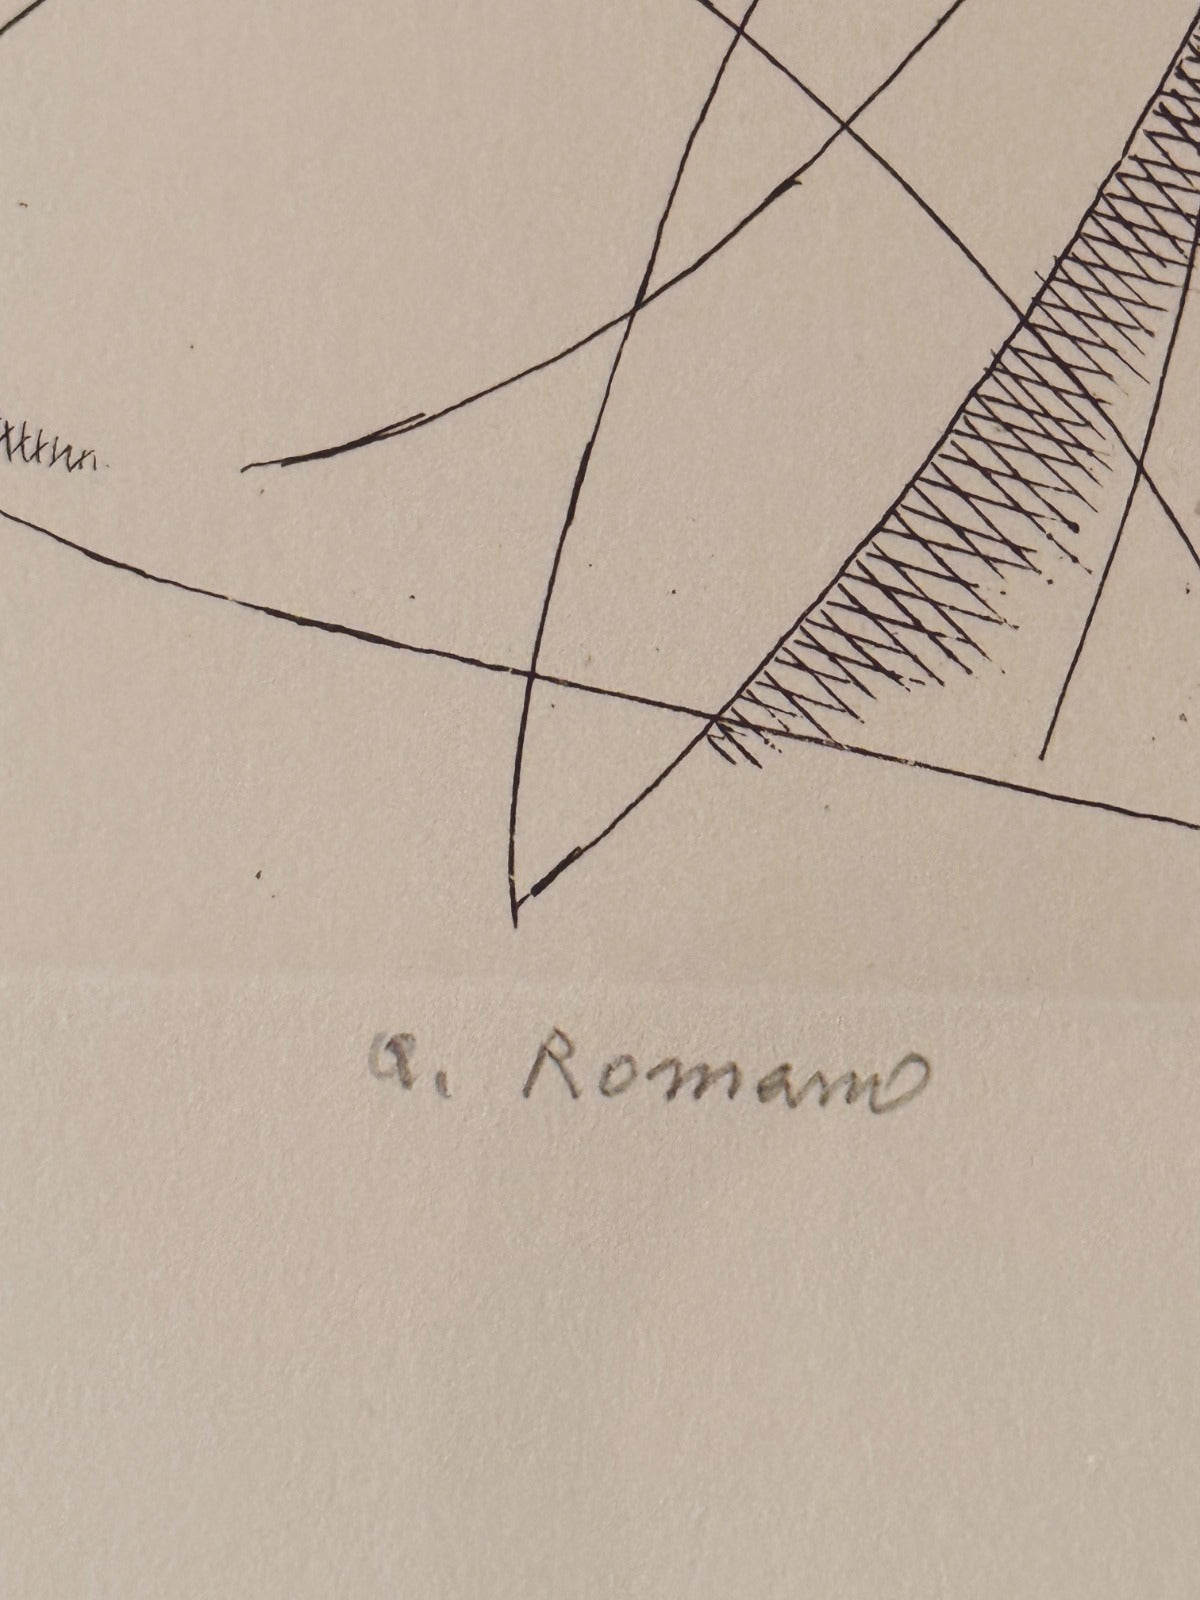 a. Romano